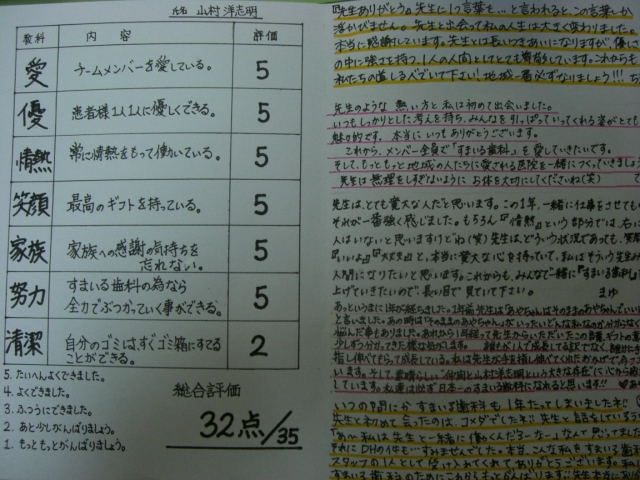 氏名 山村洋志明
教科 内容 評価
愛 チームメンバーを愛している。 5
優 患者様1人1人に優しくできる。 5
情熱 常に情熱をもって働いている。 5
笑顔 最高のギフトを持っている。 5
家族 家族への感謝の気持ちを
忘れない。 5
努力 すまいる歯科の為なら
全力でぶつかっていく事ができる。 5
清潔 自分のゴミは、すぐゴミ箱にすてる
ことができる。 2
5. たいへんよくできました。
4. よくできました。
3. ふつうにできました。
2. あと少しがんばりましょう。
1. もっともっとがんばりましょう。
総合評価
32点/35
『先生ありがとう。先生に1つ言葉を…と言われると、この言葉しか
浮かびません。先生と出会って私の人生は大きく変わりました。
本当に感謝しています。先生とは長いつきあいになりますが、優しさ
の中に強さを持つ、1人の人間としてとても尊敬しています。これからも
私たちの道しるべでいて下さい!地域一番必ずなりましょう!!!
先生のような熱い方と私は初めて出会いました。
いつもしっかりとした考えを持ち、みんなを引っぱっていってくれる姿がとても
魅力的です。本当にいつもありがとうございます。
これから、メンバー全員で「すまいる歯科」を愛していきたいです。
そして、もっともっと地域の人たちに愛される医院を一緒につくっていきましょう
先生は無理をしすぎないようにお体を大切にしてくださいね(笑)
先生は、とても寛大な人だと思います。この1年、一緒に仕事をさせても
それが一番強く感じました。もちろん『情熱』という部分では、右に
人はいないと思いますけどね(笑)先生は、どういう状況であっても、
『いいよ』『大丈夫』と、本当に寛大な心を持っていて、私はそういう
人間になりたいと思います。これからも、みんなで一緒に『すまいる歯科』
上げていきたいので、長い目で見ていて下さい。 まゆ
あっというまに1年が経ちました。1年前先生は
と言いました。
しています。私達は必ず日本一のすまいる歯科になれると思います!!
いつの間にかすまいる歯科も1年たってしまいましたネ!!
先生と初めて会ったのは、コメダでしたネ!!先生と話をしている
「あ〜私は先生と一緒に働くんだろーな〜」なんて思ってました
それにDHの1件も…すみませんでした。本当、こんな私をすまいる歯科
スタッフの1人として受け入れてくれてありがとうございます。